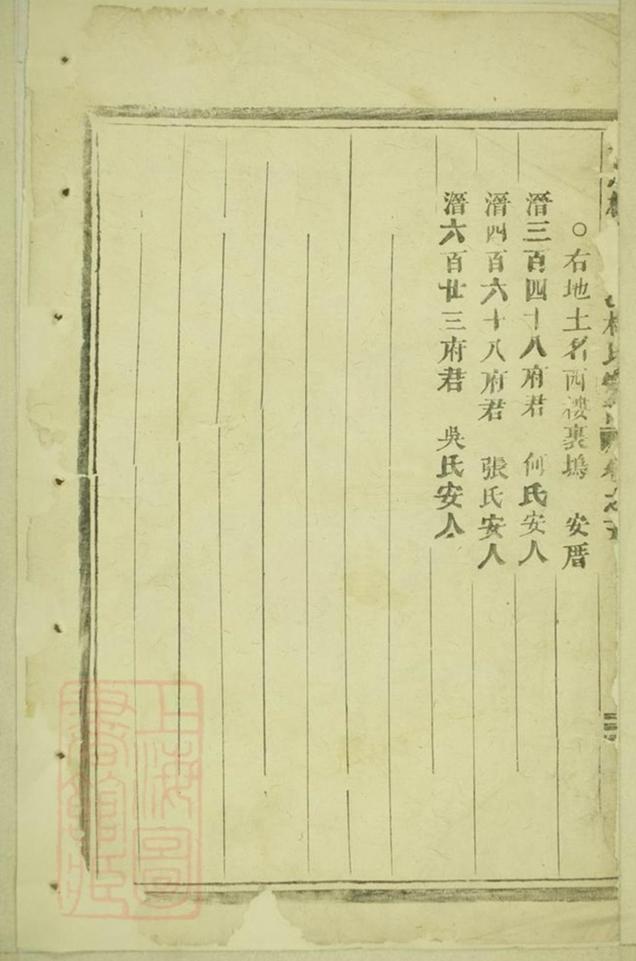 ○右地土名西樓裏塢 安厝
潛三百四十八府君 何氏安人
潛四百六十八府君 張氏安人
潛六百廿三府君 吳氏安人
上海圖書館藏